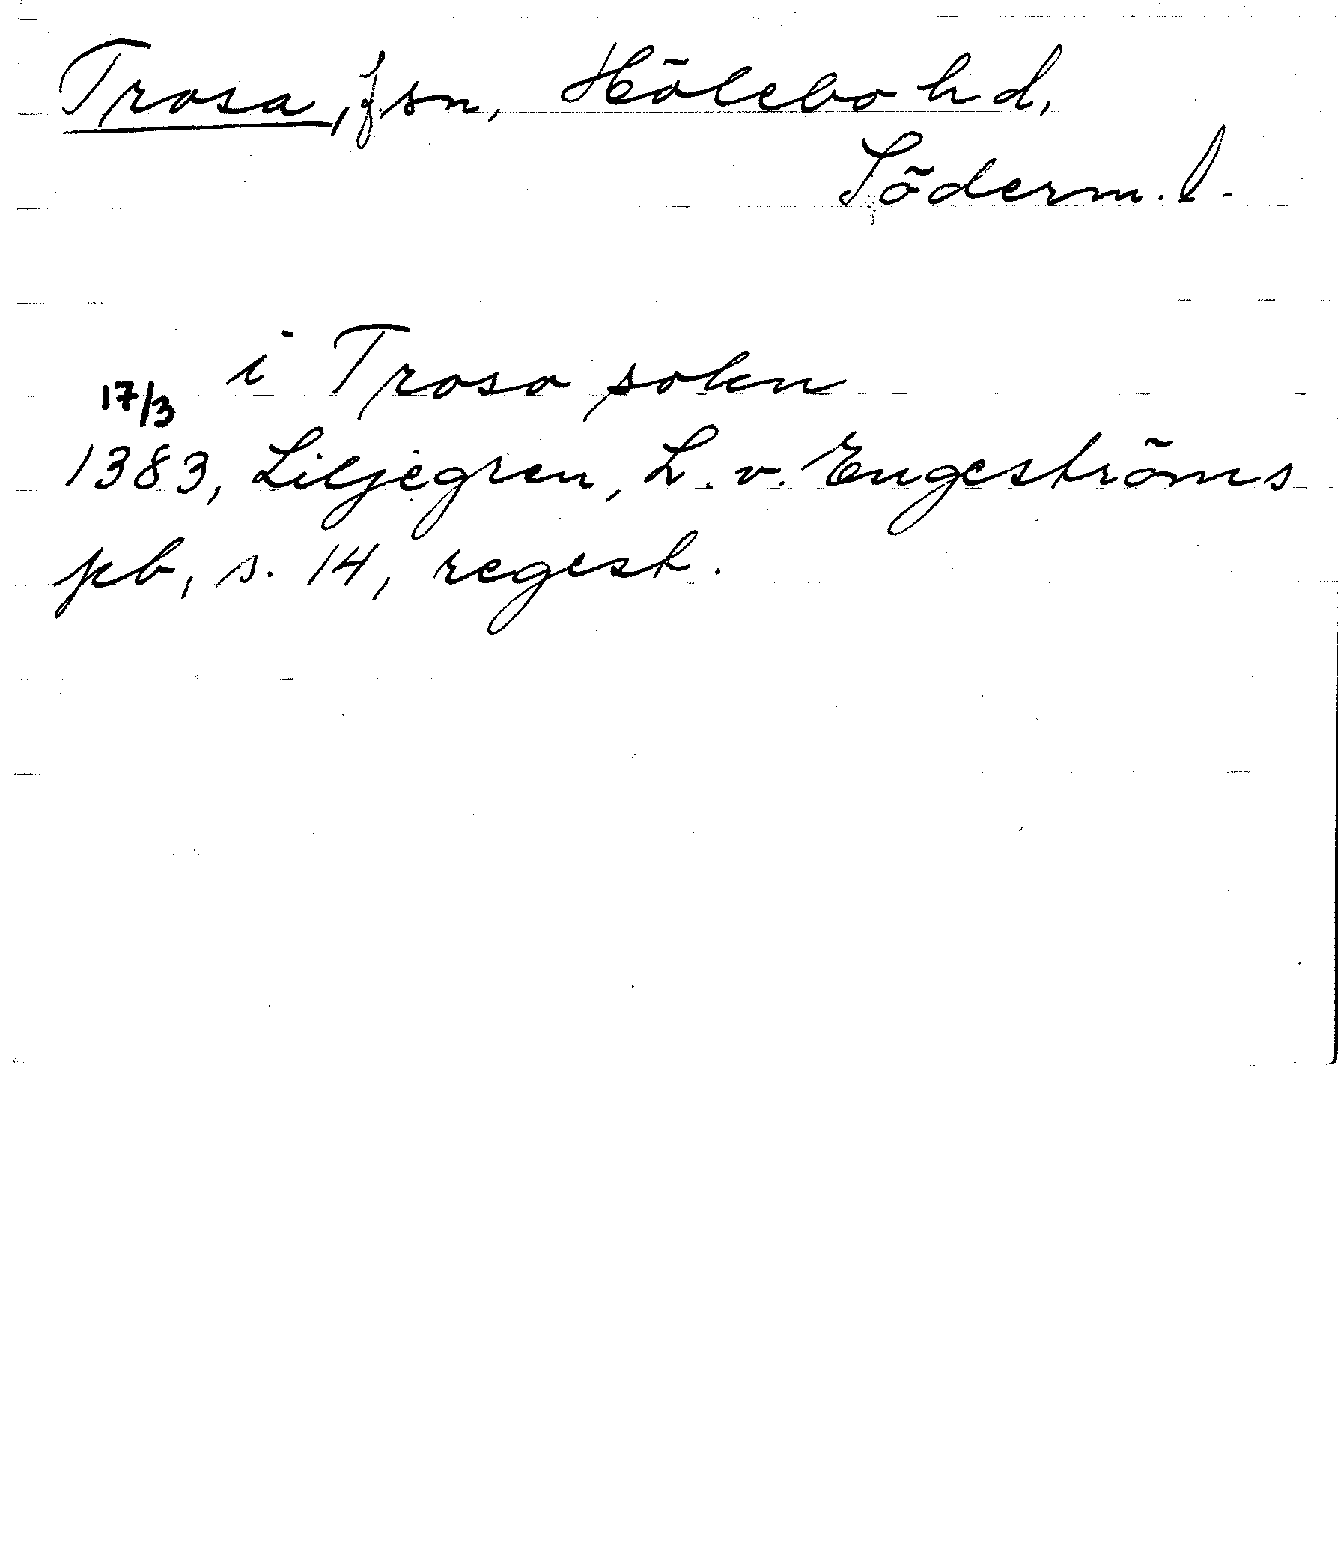 Trosa, fsn, Hölebo hd,
Söderm. l.
i Troso sokn
17/3
1383, Liljegren, L. v. Engeströms
pb, s. 14, regest.